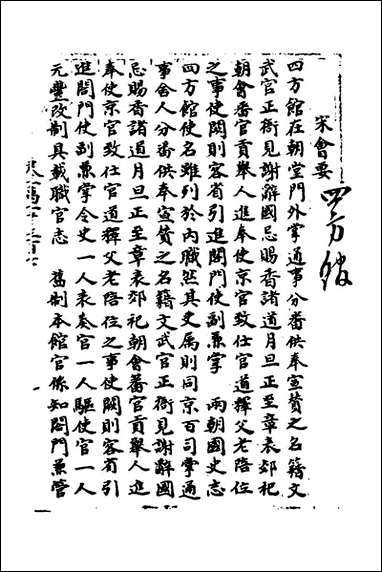 宋會要
四方館
四方館在朝堂門外掌通事分番供奉宣贊之名籍文
武官正衙見謝辭國忌賜香諸道月旦正至章表郊祀
朝會蕃官貢舉人進奉使京官致仕官道釋父老陪位
之事使闕則客省引進閤門使副兼掌 兩朝國史志
四方館使名雖列於內職然其史属則同京百司掌通
事舍人分番供奉宣贊之名籍文武官正衙見謝辭國
忌賜香諸道月旦正至章表郊祀朝會蕃官貢舉人進
奉使京官致仕官道釋父老陪位之事使闕則客省引
進閤門使副兼掌令史一人表奏官一人驅使官一人
元豐改制具載職官志 舊制本館官係知閤門兼管